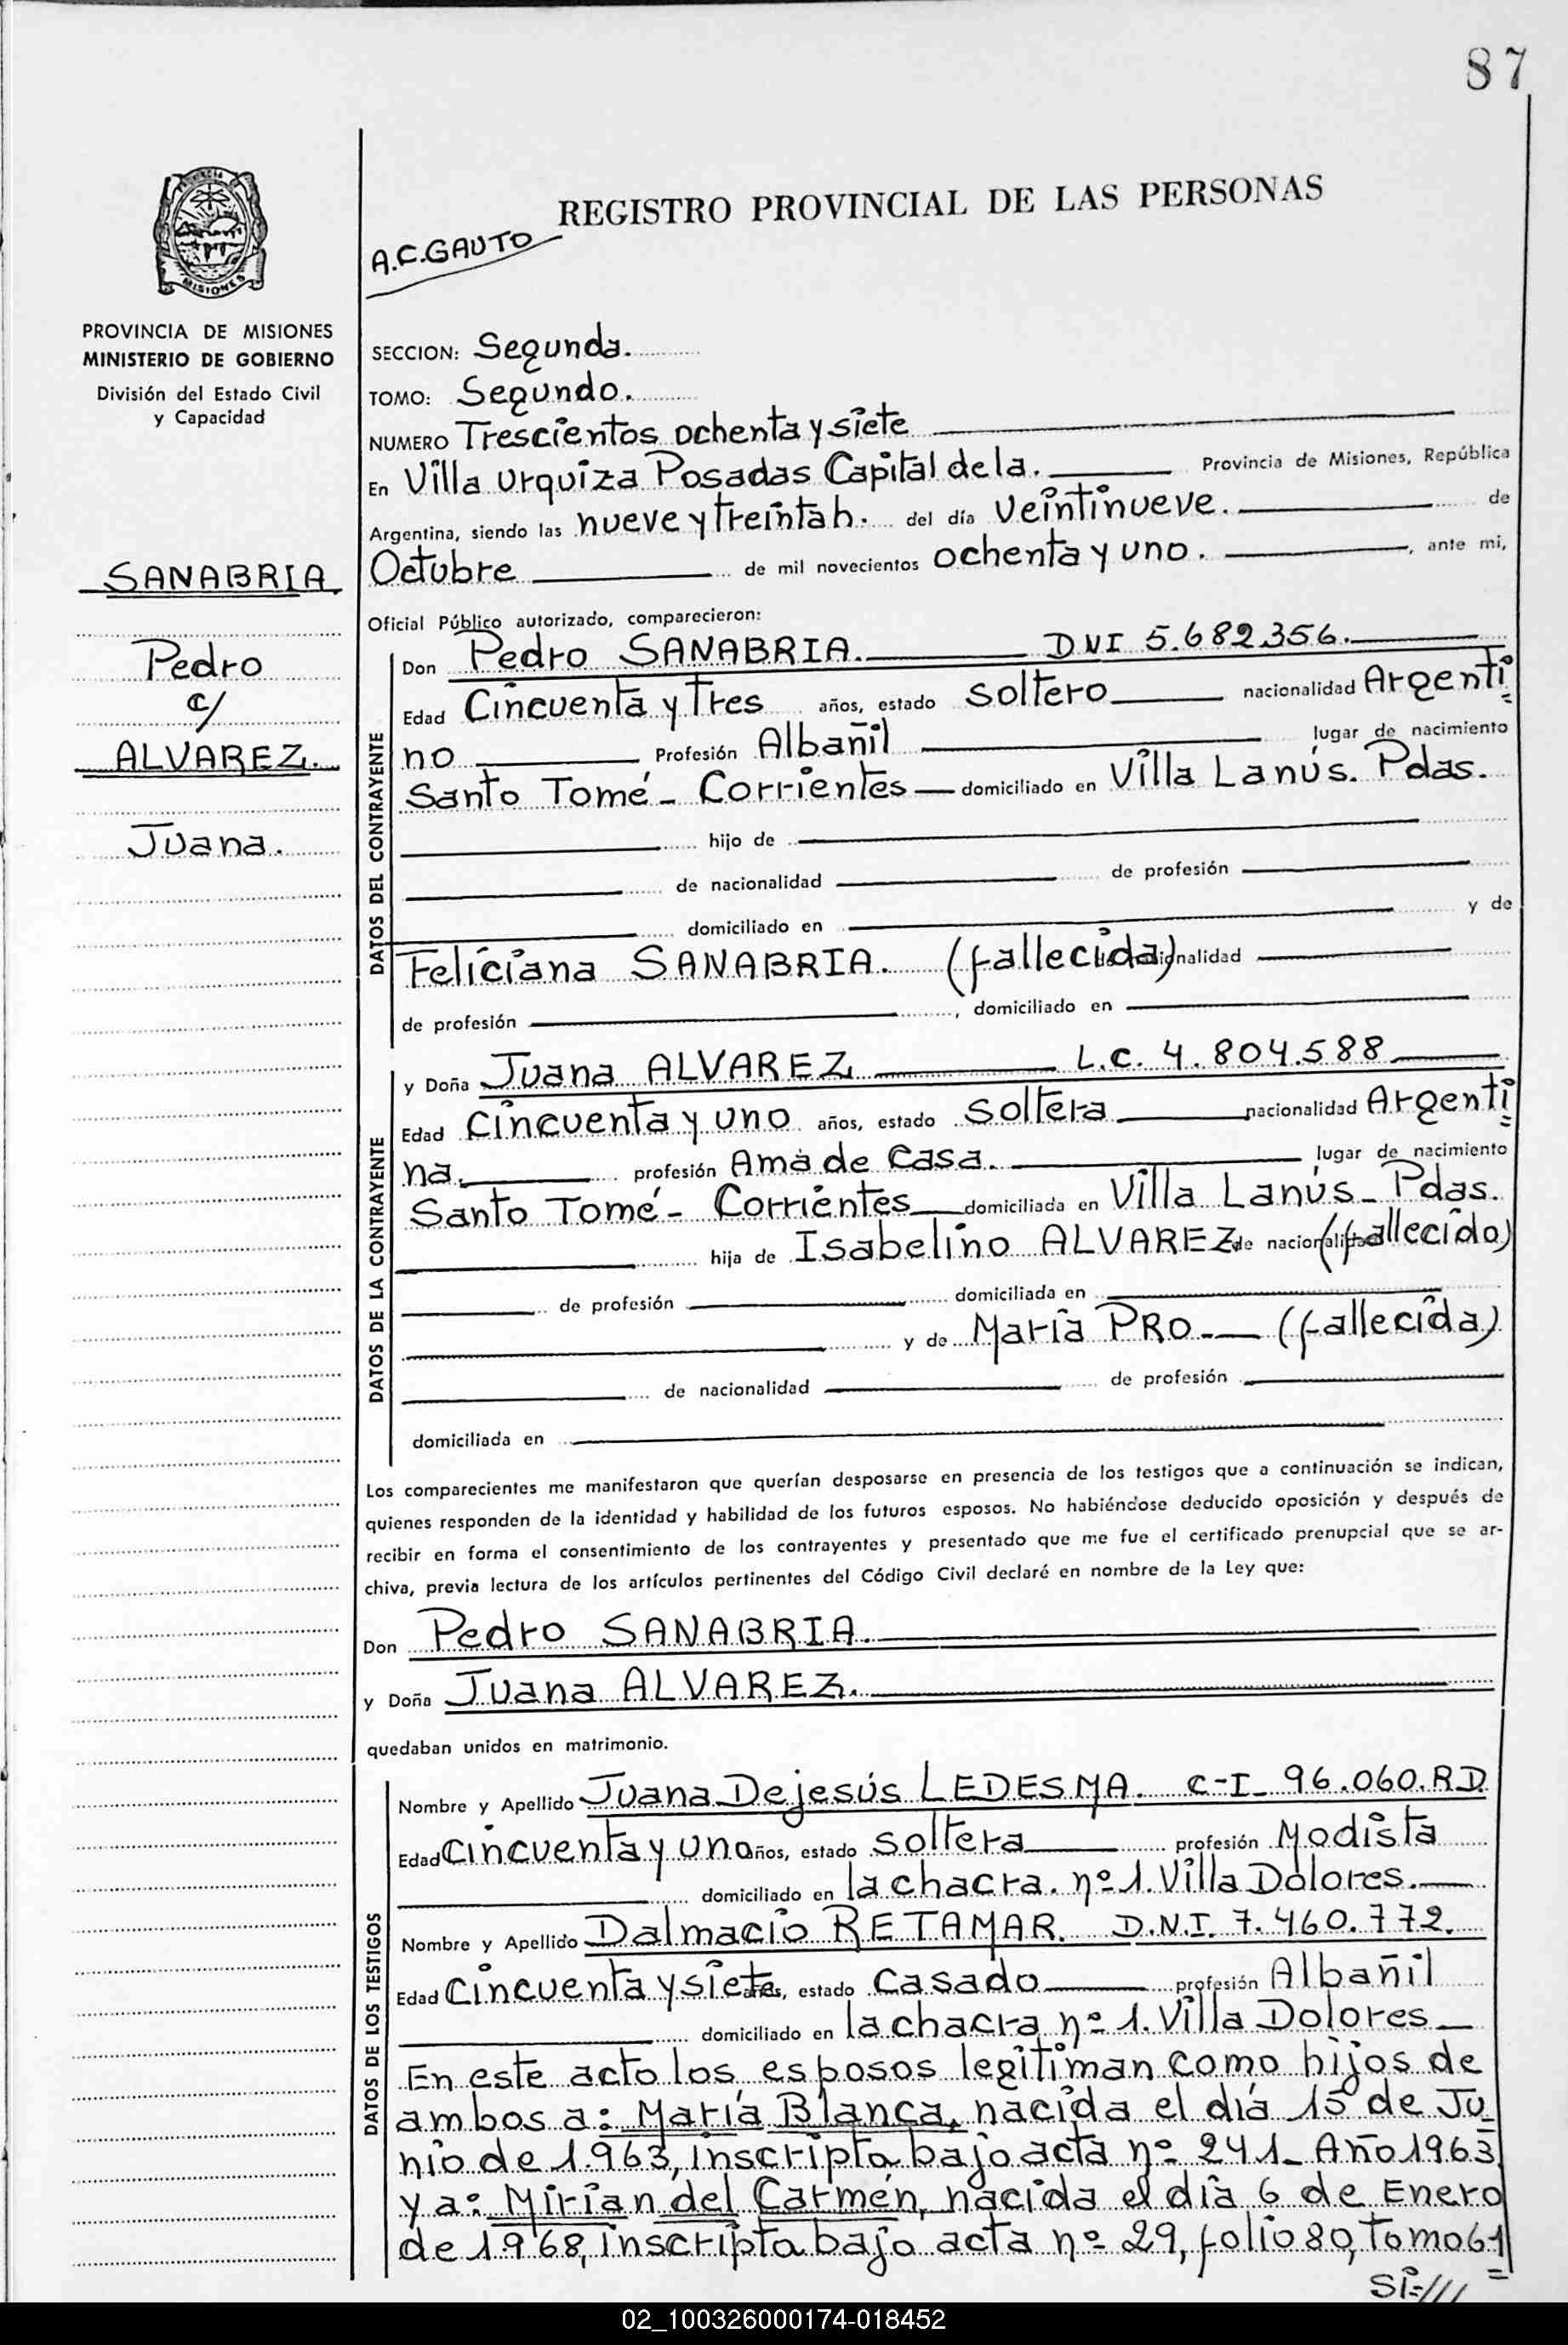 87
REGISTRO PROVINCIAL DE LAS PERSONAS
A.C.GAUTO
MISIONES
PROVINCIA DE MISIONES
MINISTERIO DE GOBIERNO
División del Estado Civil
y Capacidad
SECCION: Segunda.
TOMO: Segundo.
NUMERO Trescientos ochenta y siete
En Villa Urquiza Posadas Capital de la. Provincia de Misiones, República
Argentina, siendo las nueve y treinta h. del día Veintinueve. de
Octubre de mil novecientos ochenta y uno. , ante mi,
Oficial Público autorizado, comparecieron:
SANABRIA
Pedro
c/
ALVAREZ.
Juana.
DATOS DEL CONTRAYENTE
Don Pedro SANABRIA. DNI 5.682.356.
Edad Cincuenta y Tres años, estado Soltero nacionalidad Argenti
no Profesión Albañil lugar de nacimiento
Santo Tomé - Corrientes domiciliado en Villa Lanús. Pdas.
hijo de
de nacionalidad de profesión
domiciliado en y de
Feliciana SANABRIA. (fallecida) nalidad
de profesión , domiciliado en
DATOS DE LA CONTRAYENTE
y Doña Juana ALVAREZ L.C. 4.804.588
Edad Cincuenta y uno años, estado Soltera nacionalidad Argenti
na. profesión Ama de Casa. lugar de nacimiento
Santo Tomé - Corrientes domiciliada en Villa Lanús - Pdas.
hija de Isabelino ALVAREZ de nacionalidad (fallecido)
de profesión domiciliada en
y de María PRO. (fallecida)
de nacionalidad de profesión
domiciliada en
Los comparecientes me manifestaron que querían desposarse en presencia de los testigos que a continuación se indican,
quienes responden de la identidad y habilidad de los futuros esposos. No habiéndose deducido oposición y después de
recibir en forma el consentimiento de los contrayentes y presentado que me fue el certificado prenupcial que se ar-
chiva, previa lectura de los artículos pertinentes del Código Civil declaré en nombre de la Ley que:
Don Pedro SANABRIA.
y Doña Juana ALVAREZ.
quedaban unidos en matrimonio.
DATOS DE LOS TESTIGOS
Nombre y Apellido Juana Dejesús LEDESMA. C-I- 96.060.R.D
Edad Cincuenta y uno años, estado Soltera profesión Modista
domiciliado en la chacra. nº 1. Villa Dolores.
Nombre y Apellido Dalmacio RETAMAR. D.N.I. 7.460.772.
Edad Cincuenta y siete años, estado Casado profesión Albañil
domiciliado en la chacra nº 1. Villa Dolores
En este acto los esposos legitiman como hijos de
ambos a: María Blanca, nacida el día 15 de Ju
nio de 1.963, inscripta bajo acta nº 241 - Año 1963
y a: Mirian del Carmen, nacida el día 6 de Enero
de 1968, inscripta bajo acta nº 29, folio 80, Tomo 61
Si-///
02_100326000174-018452